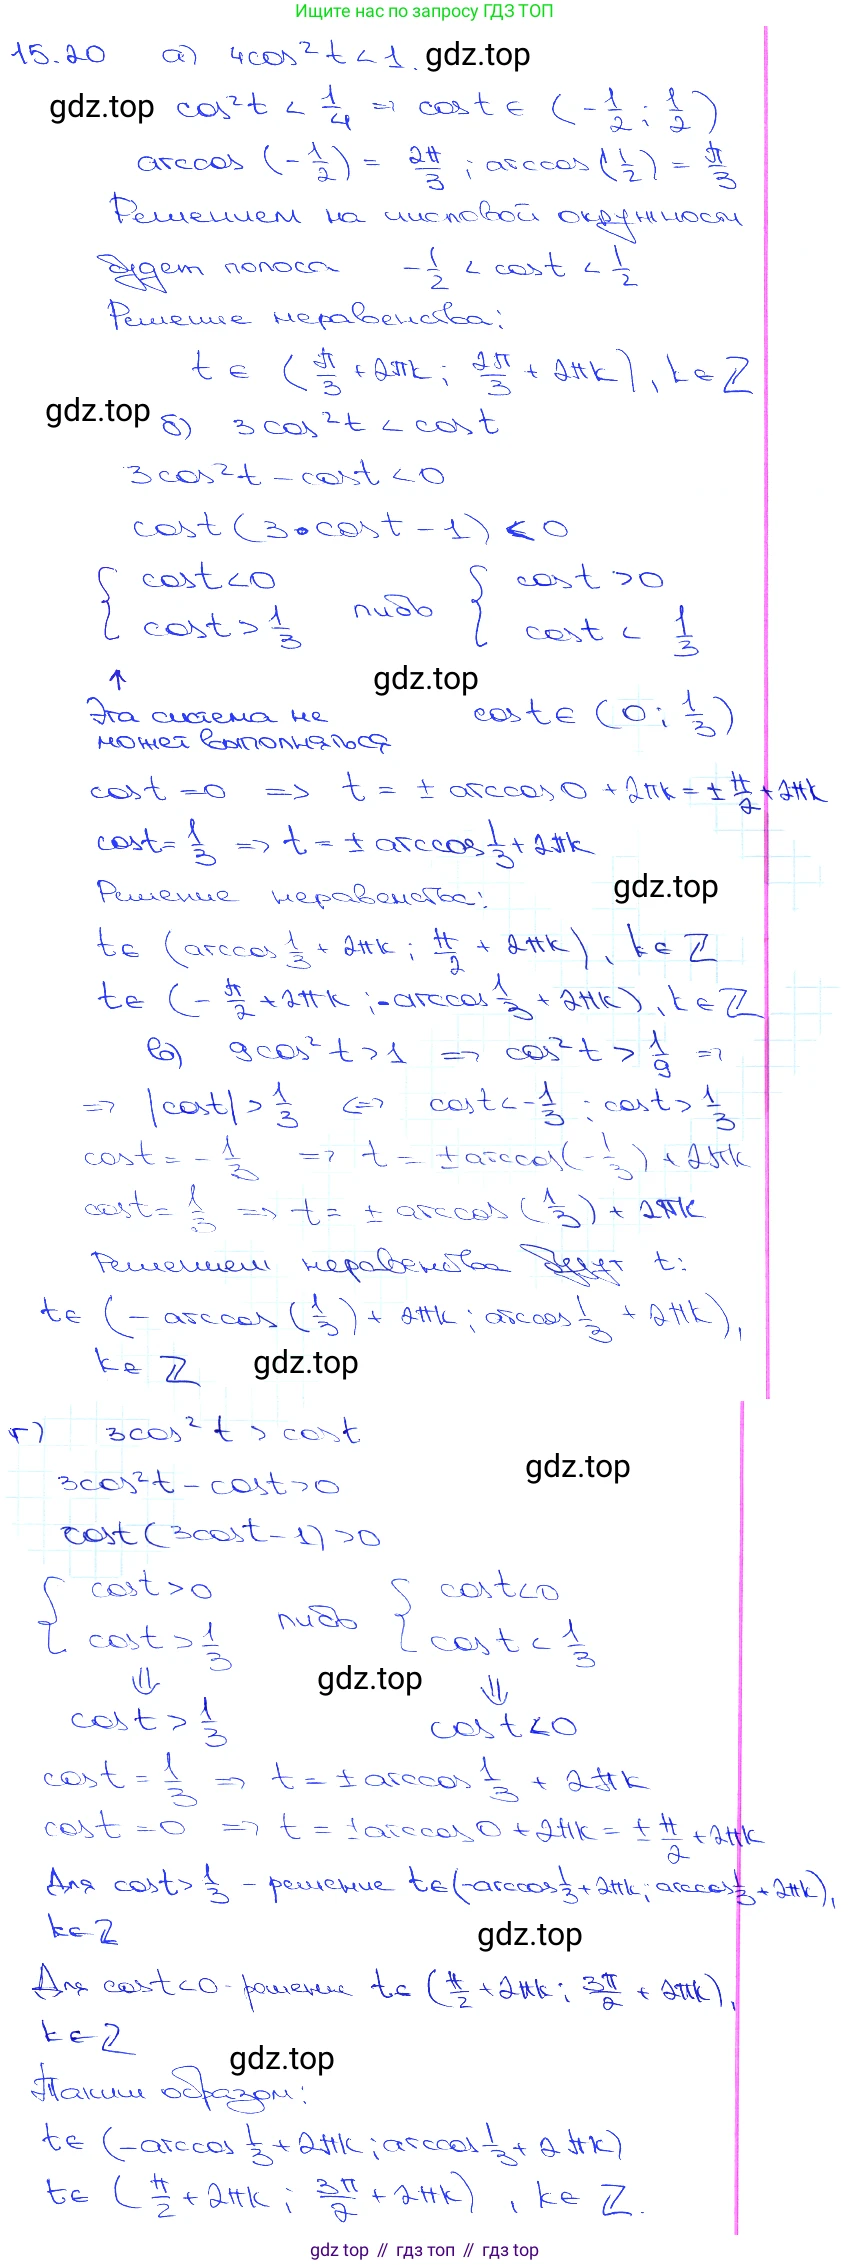 Ищите нас по запросу ГДЗ ТОП
15.20 а) 4cos²t < 1. gdz.top
gdz.top cos²t < 1/4 => cost ∈ (-1/2; 1/2)
arccos(-1/2) = 2π/3; arccos(1/2) = π/3
Решением на числовой окружности
будет полоса -1/2 < cost < 1/2
Решение неравенства:
t ∈ (π/3 + 2πk; 2π/3 + 2πk), k ∈ ℤ
gdz.top
б) 3cos²t < cost
3cos²t - cost < 0
cost(3·cost - 1) < 0
{ cost < 0 либо { cost > 0
{ cost > 1/3 { cost < 1/3
↑ gdz.top
Эта система не cost ∈ (0; 1/3)
может выполняться
cost = 0 => t = ± arccos 0 + 2πk = ± π/2 + 2πk
cost = 1/3 => t = ± arccos 1/3 + 2πk
Решение неравенства: gdz.top
t ∈ (arccos 1/3 + 2πk; π/2 + 2πk), k ∈ ℤ
t ∈ (-π/2 + 2πk; -arccos 1/3 + 2πk), k ∈ ℤ
в) 9cos²t > 1 => cos²t > 1/9 =>
=> |cost| > 1/3 <=> cost < -1/3; cost > 1/3
cost = -1/3 => t = ± arccos(-1/3) + 2πk
cost = 1/3 => t = ± arccos(1/3) + 2πk
Решением неравенства будут t:
t ∈ (-arccos(1/3) + 2πk; arccos 1/3 + 2πk),
k ∈ ℤ gdz.top
г) 3cos²t > cost
gdz.top
3cos²t - cost > 0
cost(3cost - 1) > 0
{ cost > 0 либо { cost < 0
{ cost > 1/3 { cost < 1/3
⇓ gdz.top ⇓
cost > 1/3 cost < 0
cost = 1/3 => t = ± arccos 1/3 + 2πk
cost = 0 => t = ± arccos 0 + 2πk = ± π/2 + 2πk
Для cost > 1/3 - решение t ∈ (-arccos 1/3 + 2πk; arccos 1/3 + 2πk),
k ∈ ℤ gdz.top
Для cost < 0 - решение t ∈ (π/2 + 2πk; 3π/2 + 2πk),
k ∈ ℤ
gdz.top
Таким образом:
t ∈ (-arccos 1/3 + 2πk; arccos 1/3 + 2πk)
t ∈ (π/2 + 2πk; 3π/2 + 2πk), k ∈ ℤ.
gdz top // гдз топ // gdz top